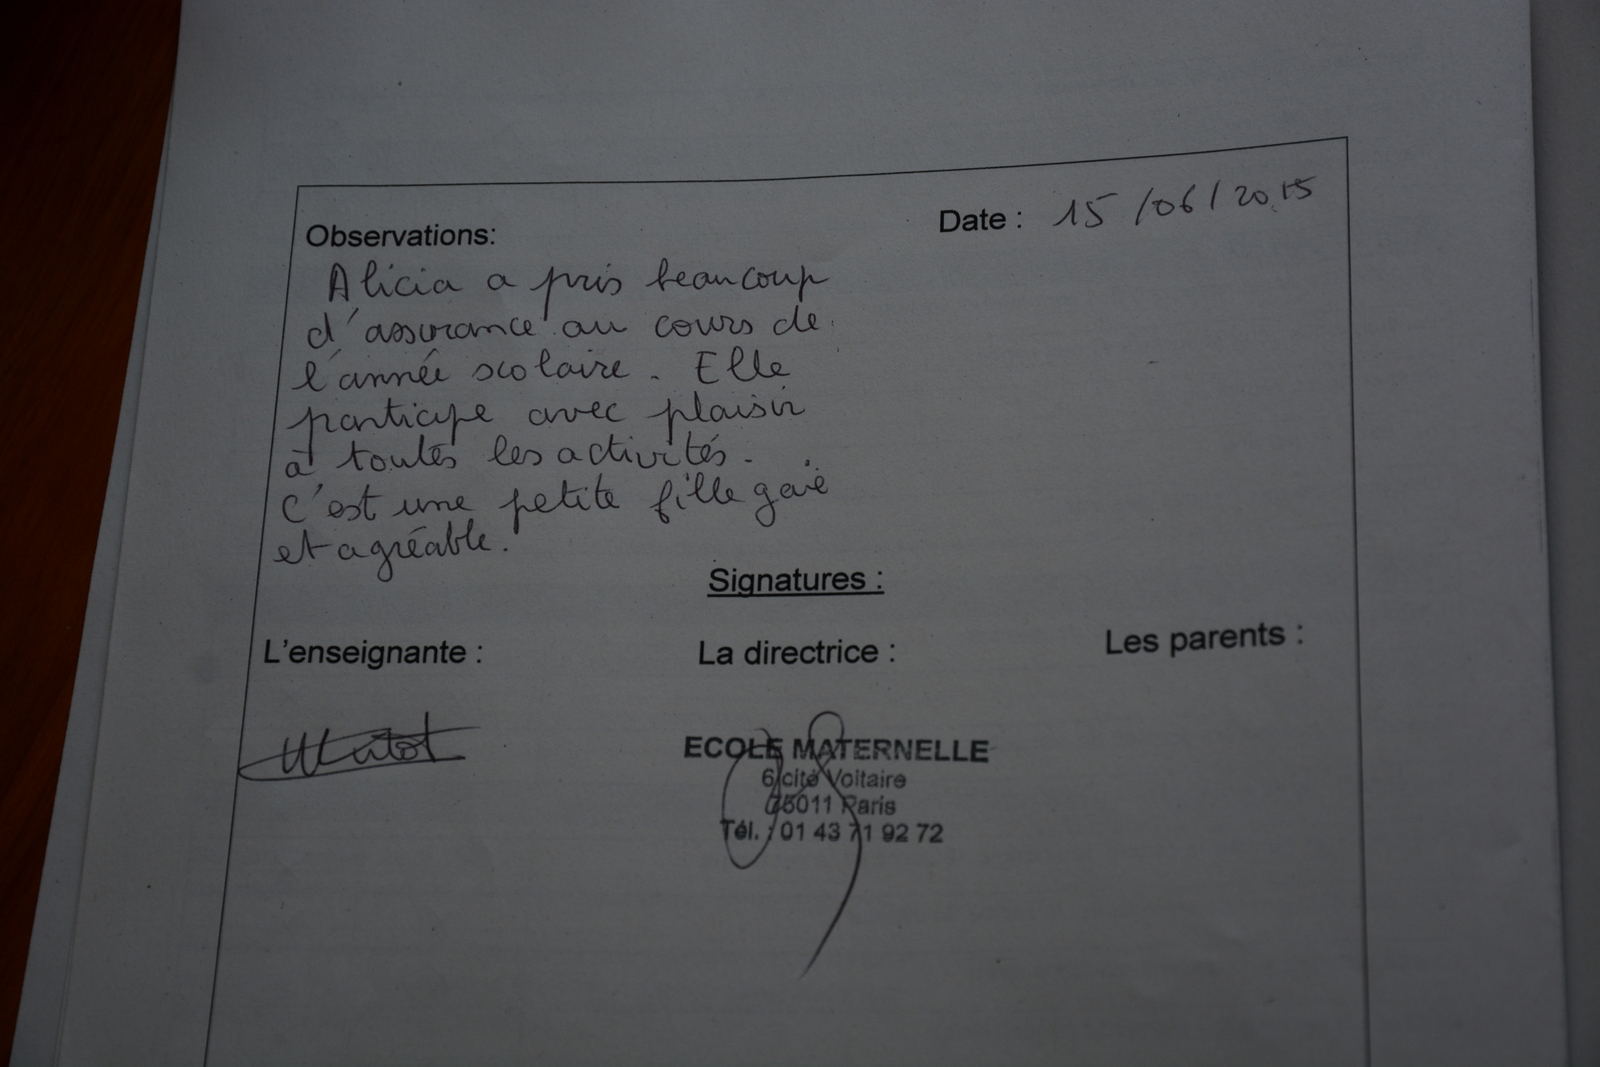 Observations:
Date : 15/06/2015
Alicia a pris beaucoup
d'assurance au cours de
l'année scolaire. Elle
participe avec plaisir
à toutes les activités.
C'est une petite fille gaie
et agréable.
Signatures :
L'enseignante :
La directrice :
Les parents :
ECOLE MATERNELLE
6 cité Voltaire
75011 Paris
Tél. : 01 43 71 92 72